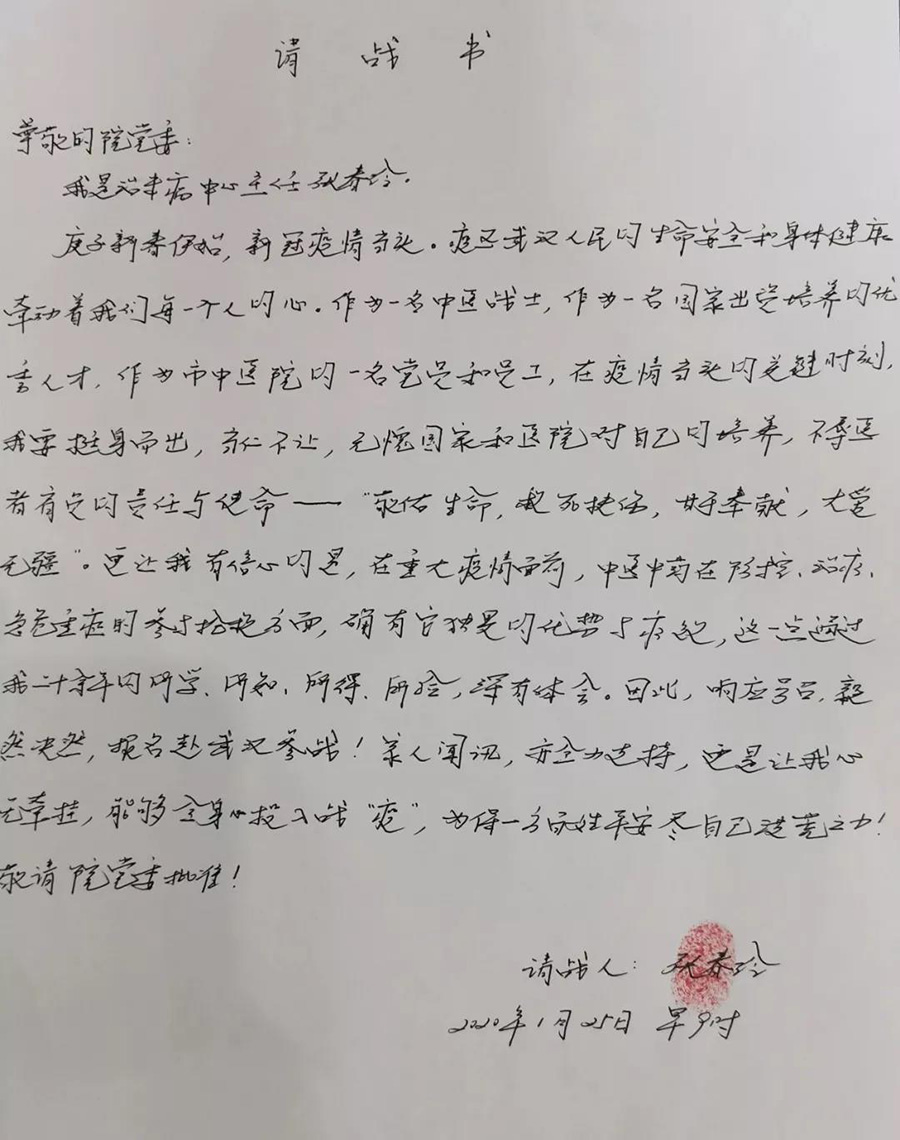 请战书
尊敬的院党委：
我是治未病中心主任张春玲。
庚子新春伊始，新冠疫情当头。疫区武汉人民的生命安全和身体健康
牵动着我们每一个人的心。作为一名中医战士，作为一名国家出资培养的优
秀人才，作为市中医院的一名党员和员工，在疫情当头的关键时刻，
我要挺身而出，当仁不让，无愧国家和医院对自己的培养，不辱医
者肩负的责任与使命——“敬佑生命，救死扶伤，甘于奉献，大爱
无疆”。更让我有信心的是，在重大疫情面前，中医中药在防控、治疗、
急危重症的参与抢救方面，确有它独具的优势与疗效，这一点通过
我二十余年的所学、所知、所得、所验，深有体会。因此，响应号召，毅
然决然，报名赴武汉参战！家人闻讯，亦全力支持，更是让我心
无牵挂，能够全身心投入战“疫”，为保一方百姓平安尽自己洪荒之力！
敬请院党委批准！
请战人：张春玲
2020年1月25日 早9时